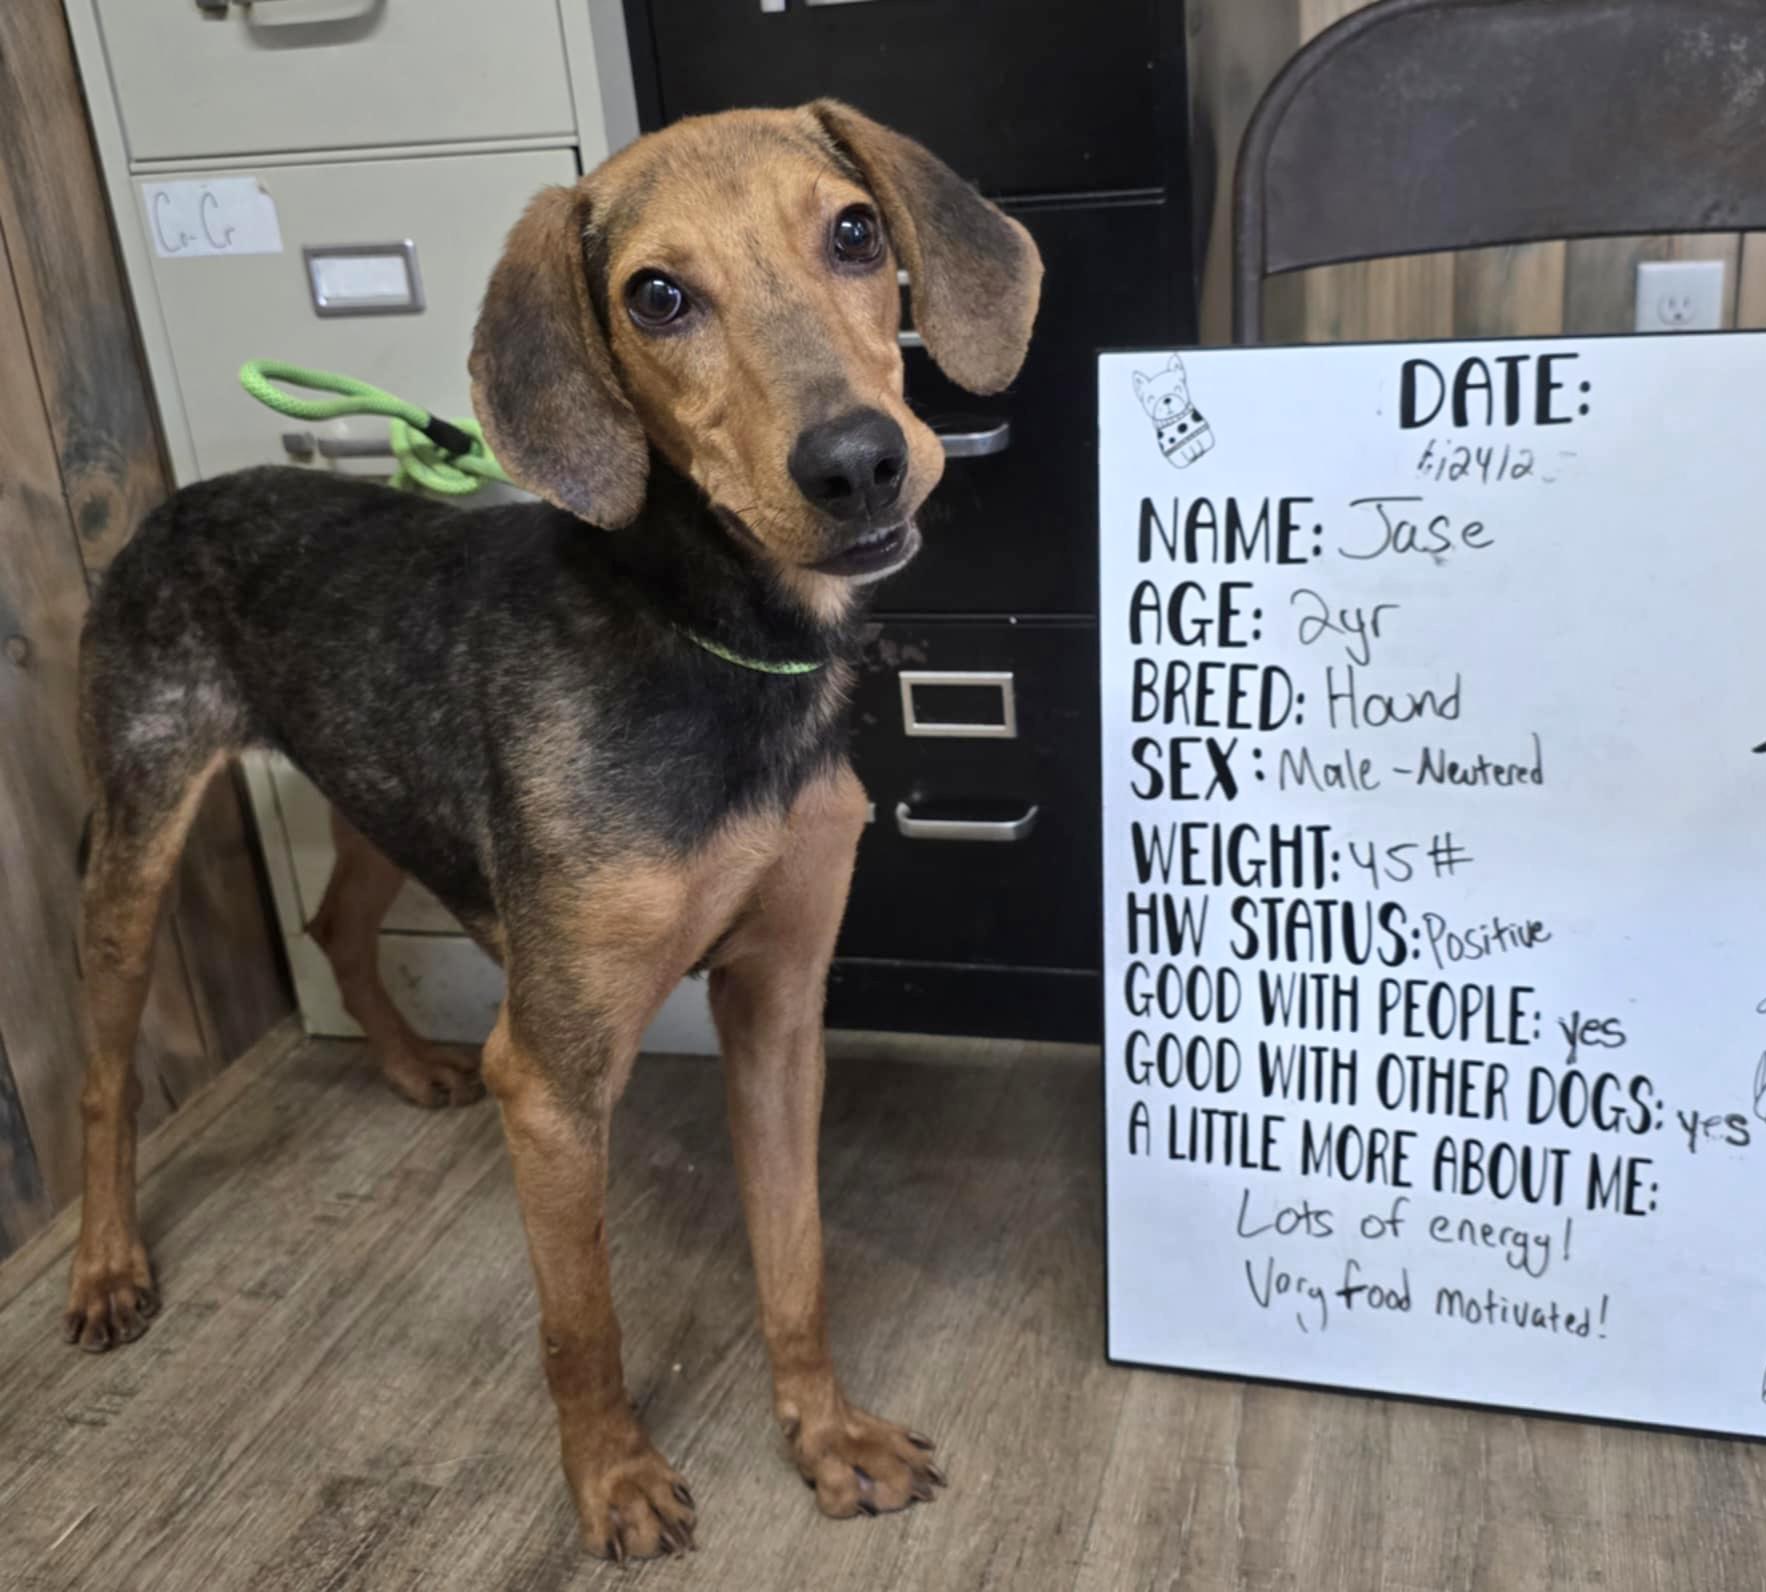 Cr-Cr
DATE:
NAME: Jase
AGE: 2yr
BREED: Hound
SEX: Male - Neutered
WEIGHT: 45#
HW STATUS: Positive
GOOD WITH PEOPLE: yes
GOOD WITH OTHER DOGS: yes
A LITTLE MORE ABOUT ME:
Lots of energy!
Very food motivated!